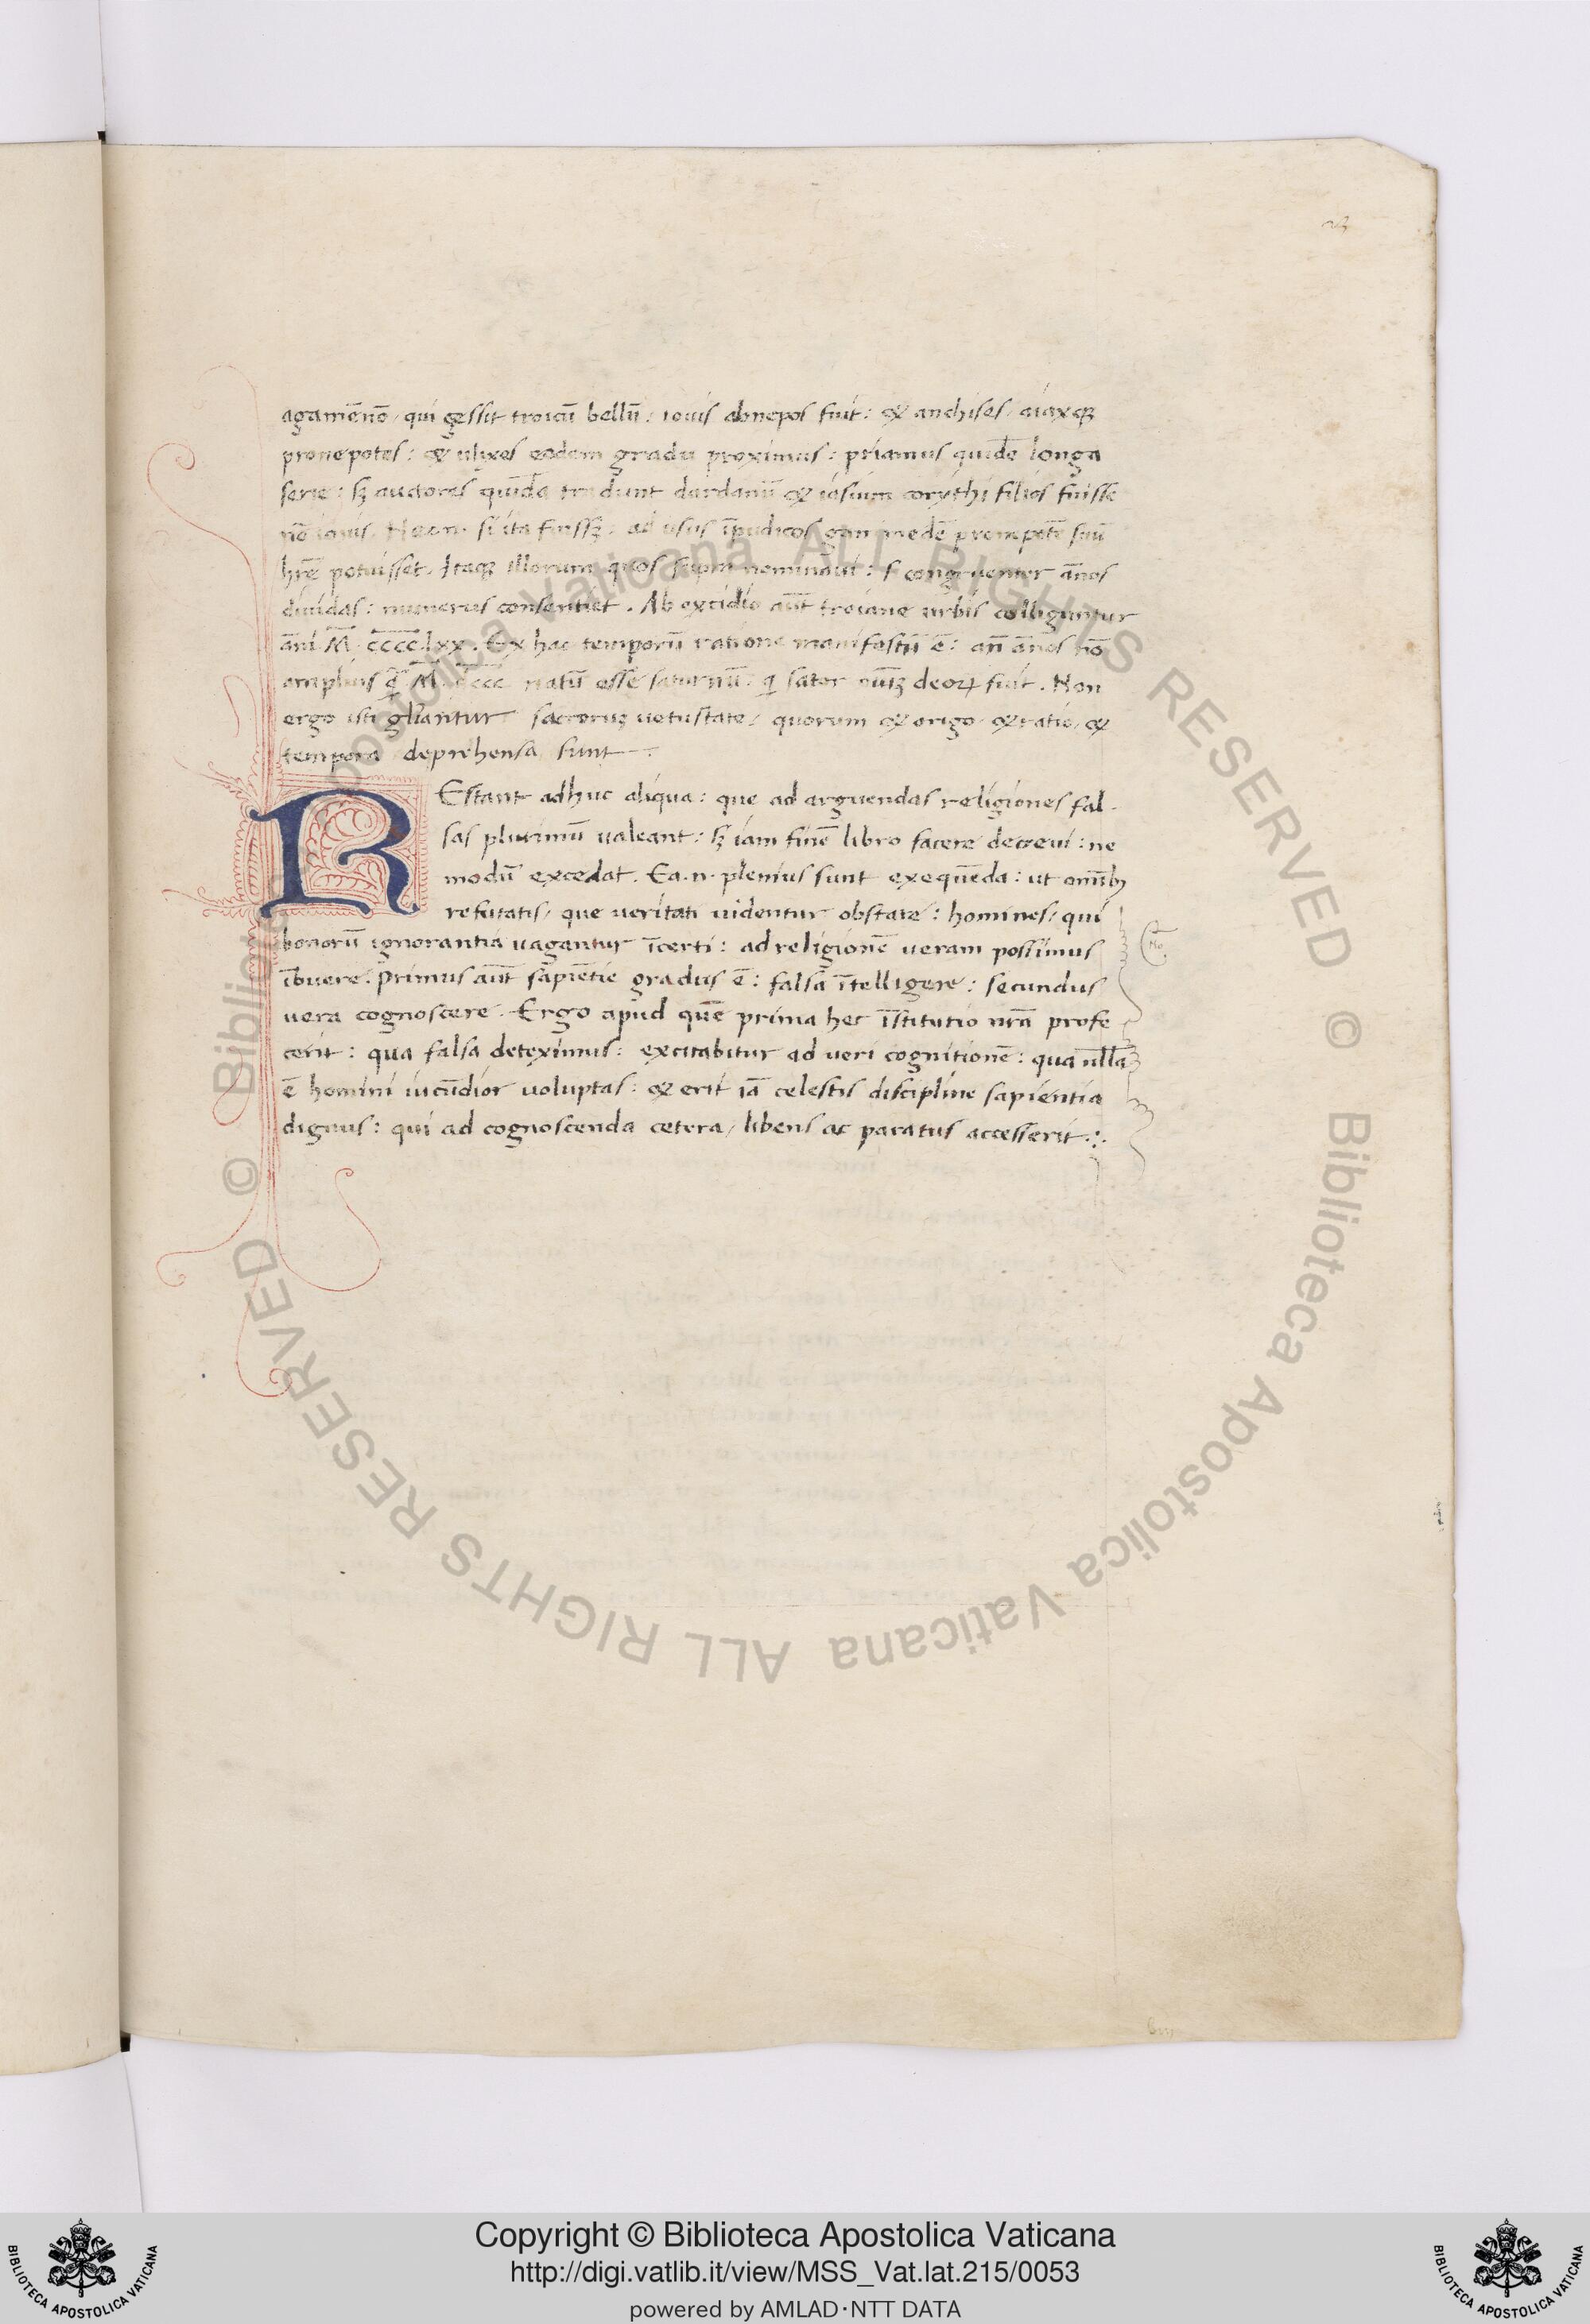 agamēnō, qui gessit troicū bellū: iouis abnepos fuit: & anchises, aiaxq;
pronepotes: & ulixes eodem gradu proximus: priamus quidē longa
serie: sꝫ auctores quidā tradunt dardanū & iasium corythi filios fuisse
nō iouis. Nec.n. si ita fuissꝫ, ad usus īpudicos ganimedē suū
hr̄e potuisset. Itaqꝫ illorum quos supra nominaui: si congruenter ānos
diuidas: numerus consentiet. Ab excidio aūt troiane urbis colliguntur
āni M̄. c̄c̄c̄c̄.lxx. Ex hac temporū ratione manifestū ē: an̄ ānos nō
amplius q̄ M̄. c̄c̄c̄c̄ natū esse saturnū. q̇ sator oīuꝫ deoꝝ fuit. Non
ergo isti gl̄iantur sacroruꝫ uetustate, quorum & origo, & ratio, &
tempora deprehensa sunt
REstant adhuc aliqua: que ad arguendas religiones fal-
sas plurimū ualeant: sꝫ iam finē libro facere decreui: ne
modū excedat. Ea.n. plenius sunt exequēda: ut omībꝫ
refutatis, que ueritati uidentur obstare: homines, qui
bonorū ignorantia uagantur īcerti: ad religionē ueram possimus
ībuere. Primus aūt sapiētie gradus ē: falsa ītelligere: secundus
uera cognoscere. Ergo apud quē prima hec īstitutio nr̄a profe
cerit: qua falsa deteximus: excitabitur ad ueri cognitionē: qua nulla
ē homini iucūdior uoluptas: & erit iā celestis discipline sapientia
dignus: qui ad cognoscenda cetera, libens ac paratus accesserit:.
© Biblioteca Apostolica Vaticana ALL RIGHTS RESERVED
© Biblioteca Apostolica Vaticana ALL RIGHTS RESERVED
Copyright © Biblioteca Apostolica Vaticana
http://digi.vatlib.it/view/MSS_Vat.lat.215/0053
powered by AMLAD·NTT DATA
BIBLIOTECA APOSTOLICA VATICANA
BIBLIOTECA APOSTOLICA VATICANA